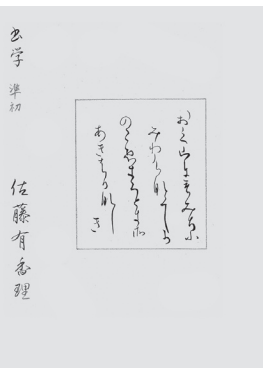 おく山にもみちふ
みわけなくしか
のこゑきくときそ
あきはかなしき
書学 準初 佐藤有香理